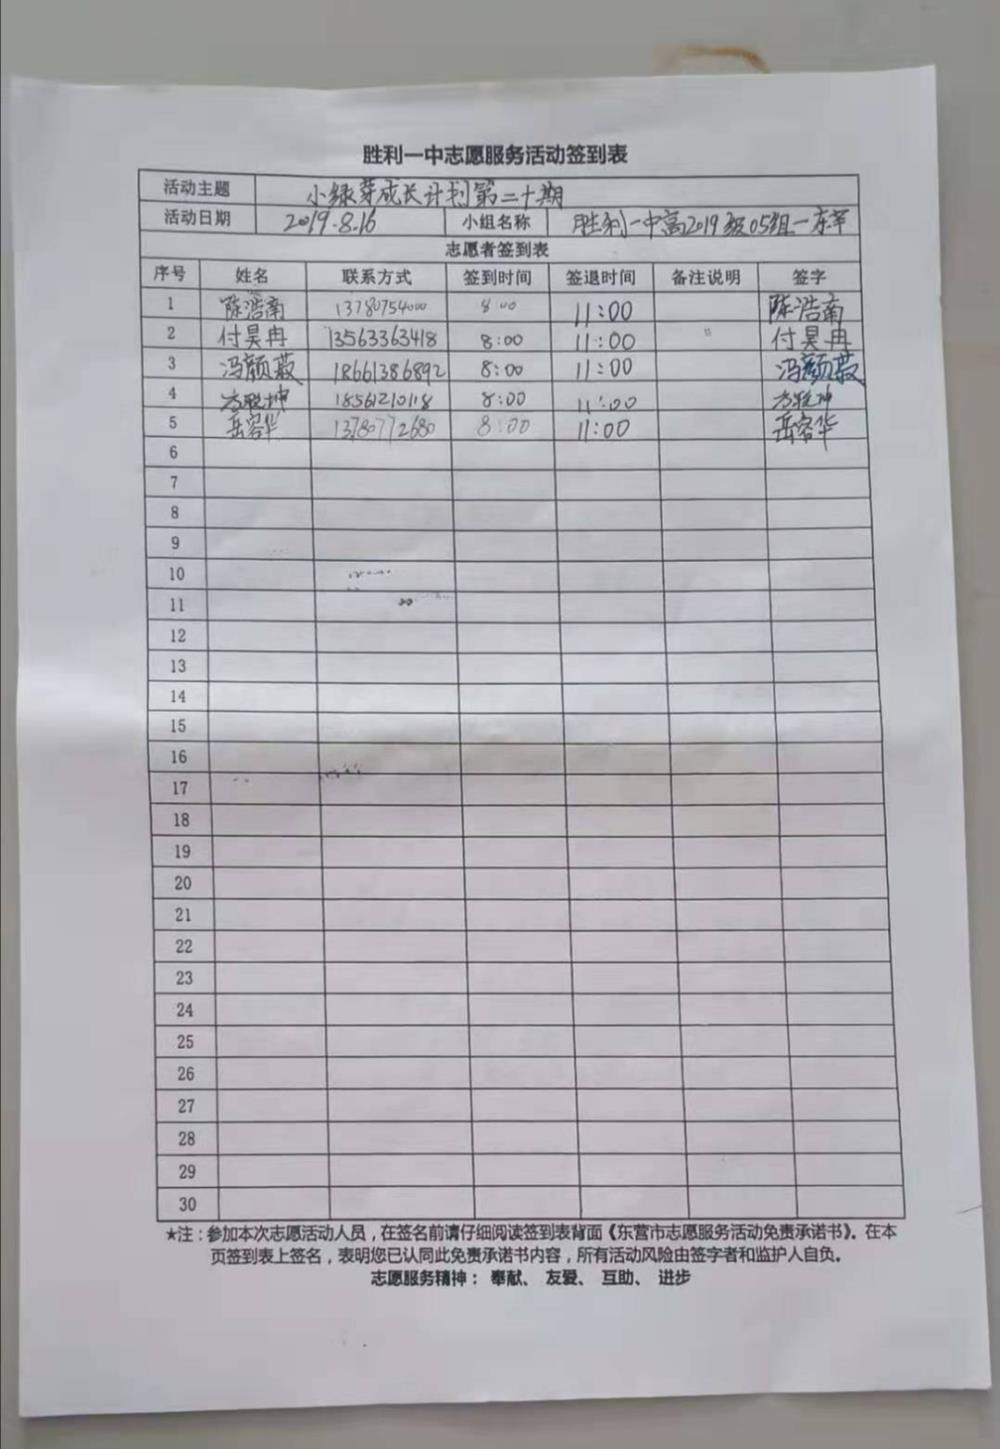 胜利一中志愿服务活动签到表
活动主题 小绿芽成长计划第二十期
活动日期 2019.8.16 小组名称 胜利一中高2019级05组一东苹
志愿者签到表
序号 姓名 联系方式 签到时间 签退时间 备注说明 签字
1 陈浩南 13780754000 8:00 11:00 陈浩南
2 付昊冉 13563363418 8:00 11:00 付昊冉
3 冯颜薇 18661386892 8:00 11:00 冯颜薇
4 18561210118 8:00 11:00
5 岳容华 13780772680 8:00 11:00 岳容华
6
7
8
9
10
11
12
13
14
15
16
17
18
19
20
21
22
23
24
25
26
27
28
29
30
★注：参加本次志愿活动人员，在签名前请仔细阅读签到表背面《东营市志愿服务活动免责承诺书》。在本
页签到表上签名，表明您已认同此免责承诺书内容，所有活动风险由签字者和监护人自负。
志愿服务精神： 奉献、 友爱、 互助、 进步